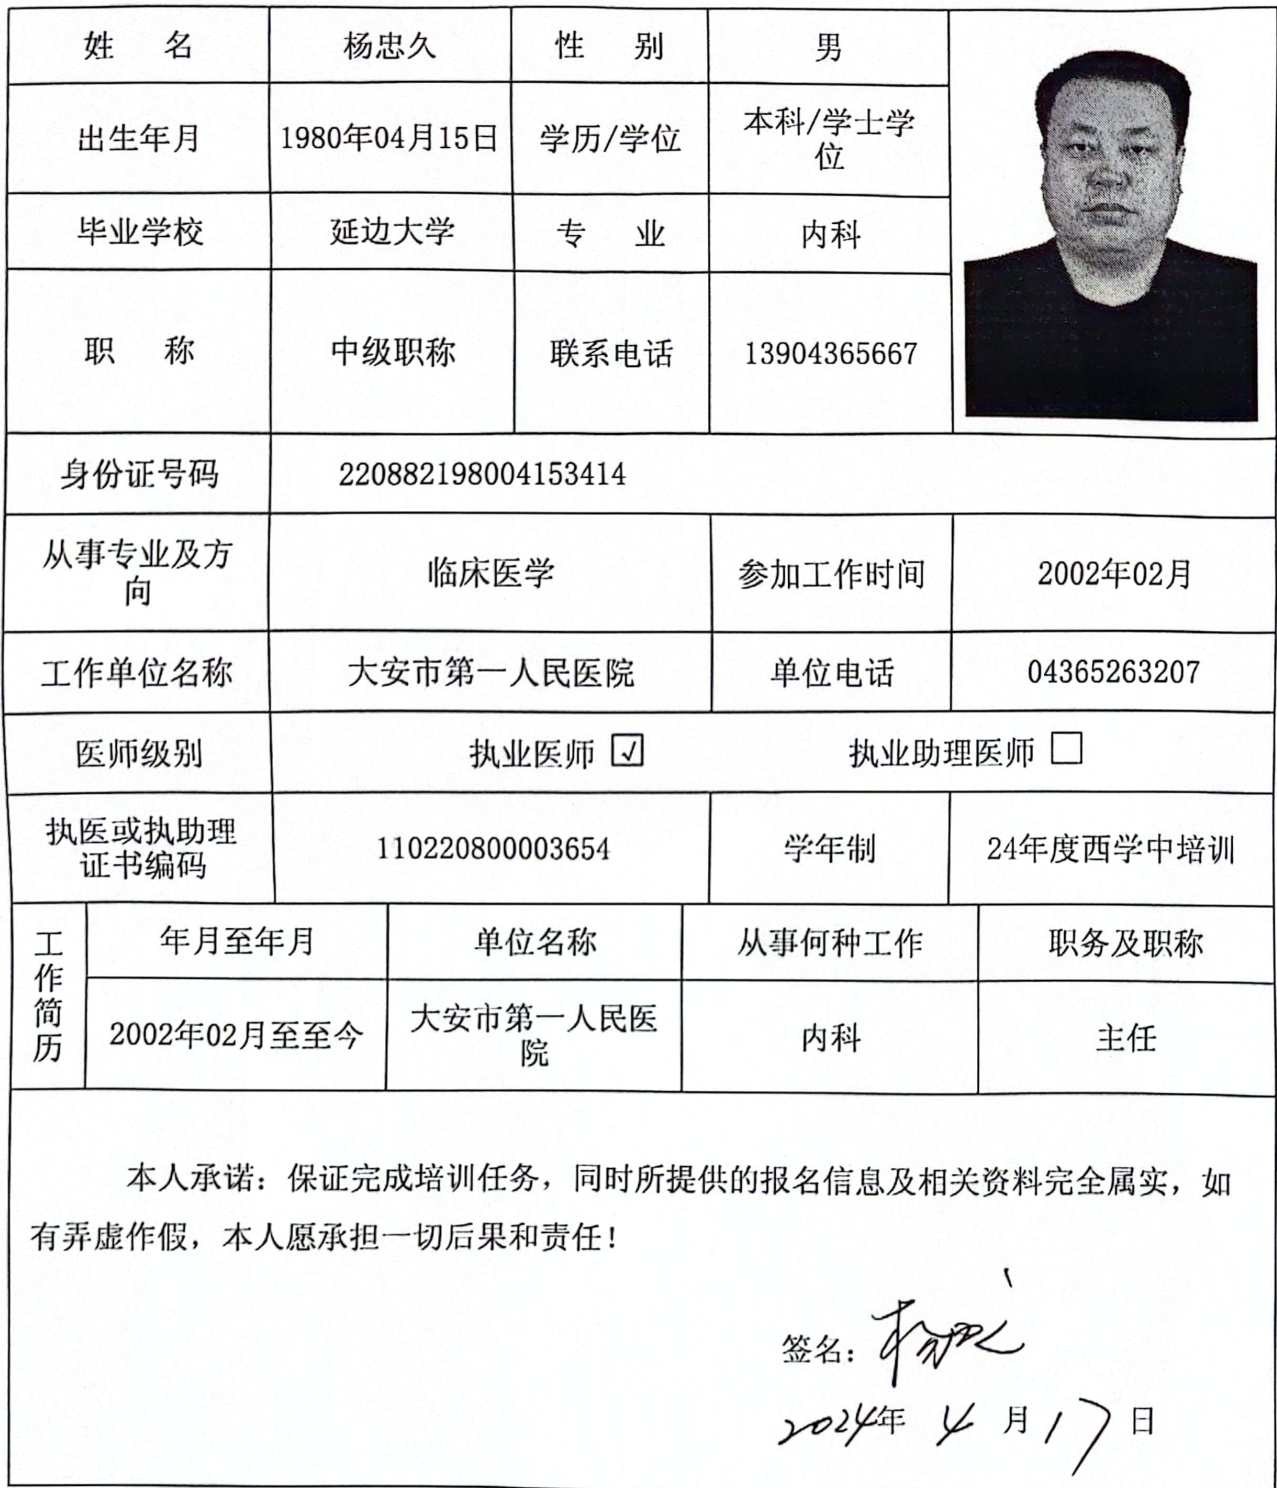 姓 名 杨忠久 性 别 男
出生年月 1980年04月15日 学历/学位 本科/学士学
位
毕业学校 延边大学 专 业 内科
职 称 中级职称 联系电话 13904365667
身份证号码 220882198004153414
从事专业及方
向 临床医学 参加工作时间 2002年02月
工作单位名称 大安市第一人民医院 单位电话 04365263207
医师级别 执业医师 ☑ 执业助理医师 ☐
执医或执助理
证书编码 110220800003654 学年制 24年度西学中培训
工作简历
年月至年月 单位名称 从事何种工作 职务及职称
2002年02月至至今 大安市第一人民医
院 内科 主任
本人承诺：保证完成培训任务，同时所提供的报名信息及相关资料完全属实，如
有弄虚作假，本人愿承担一切后果和责任！
签名：
2024年 4 月 17 日